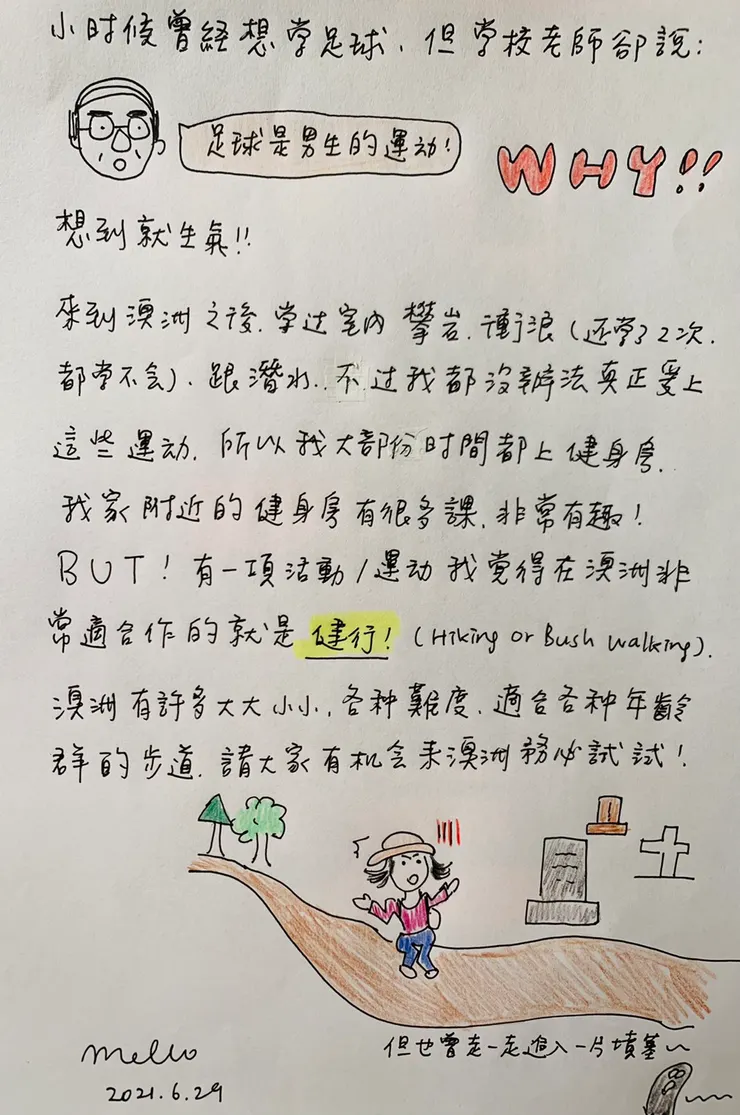 小时候曾经想学足球，但学校老師卻説：
足球是男生的運动！
WHY!!
想到就生氣!!
來到澳洲之後，学过室內攀岩，衝浪（还学了2次，
都学不会），跟潛水，不过我都沒辦法真正愛上
這些運动，所以我大部份时間都上健身房，
我家附近的健身房有很多課，非常有趣！
BUT！有一項活動/運动我覚得在澳洲非
常適合作的就是健行！（Hiking or Bush walking）.
澳洲有許多大大小小，各种難度，適合各种年齡
群的步道，請大家有机会来澳洲務必試試！
但也曾走一走追入一片墳墓~
mello
2021.6.29